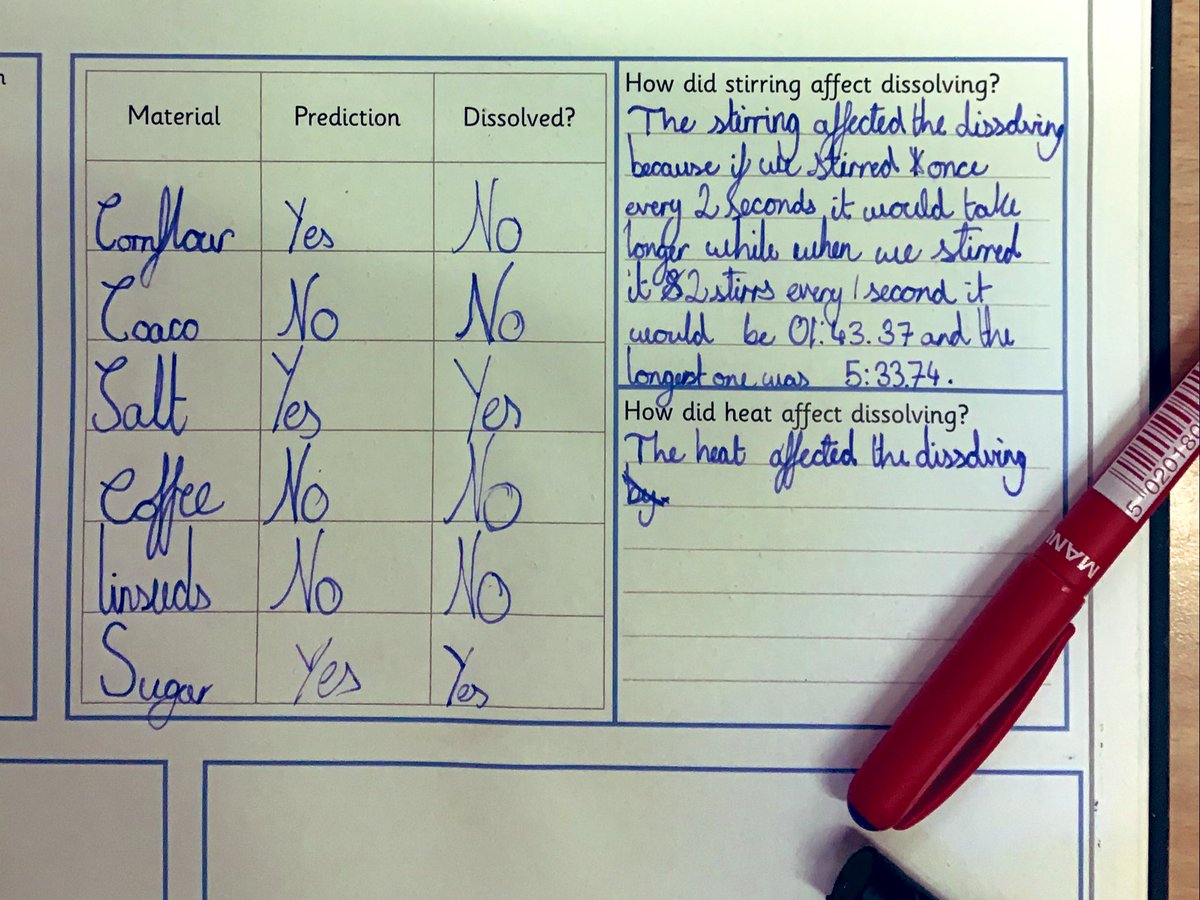 n
Material Prediction Dissolved?
Cornflour Yes No
Coaco No No
Salt Yes Yes
Coffee No No
linseeds No No
Sugar Yes Yes
How did stirring affect dissolving?
The stirring affected the dissolving
because if we stirred once
every 2 seconds, it would take
longer while when we stirred
it 2 stirrs every 1 second it
would be 01:43.37 and the
longest one was 5:33.74.
How did heat affect dissolving?
The heat affected the dissolving
by
MANU
5 020189